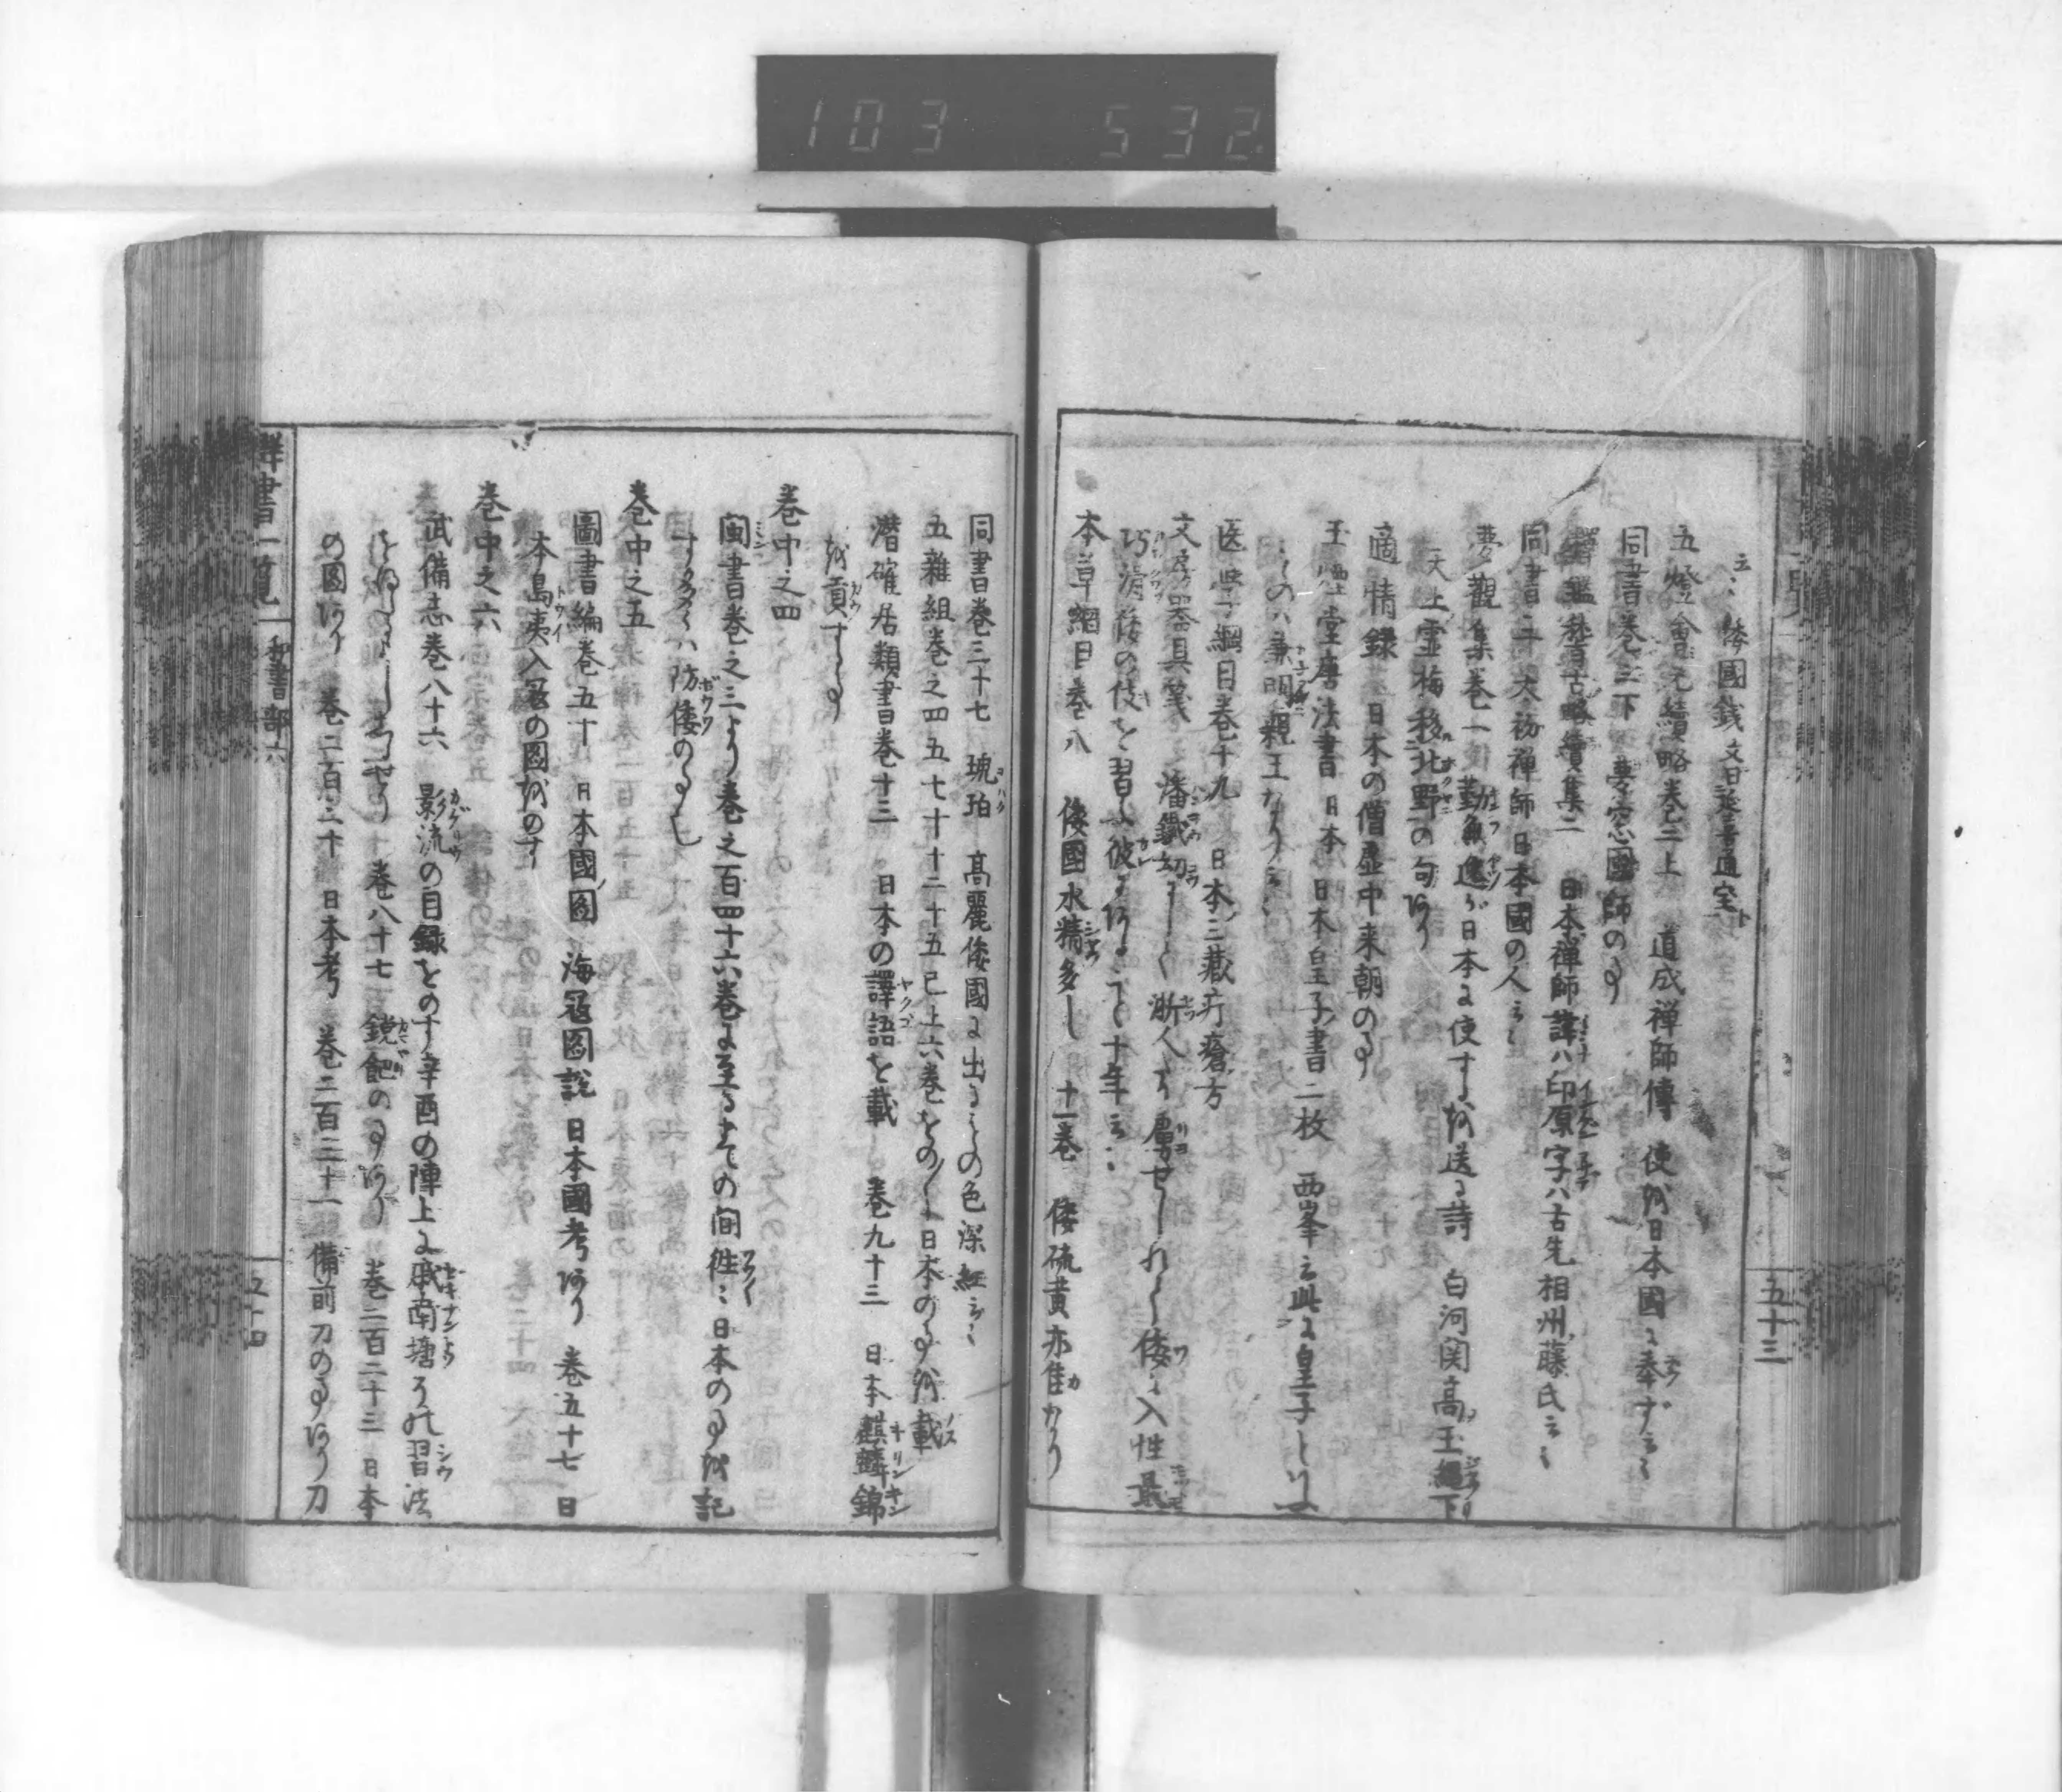 103 532
云〻 倭國銭 文曰延喜通宝ト
五燈會元續略巻二上 道成禅師傳 使ヲ日本國ニ奉ズ云〻
同書巻三下 夢窓國師の事
釋鑑稽古略續集二 日本禅師諱ハ印原字ハ古先相州藤氏云〻
同書二 大初禅師日本國の人云〻
夢觀集巻一 勤無逸ガ日本ニ使するを送る詩 白河関高玉縄下
天上霊梅移北野の句あり
適情録 日本の僧虚中来朝の事
玉煙堂唐法書 日本 日本皇子書二枚 西峯云此ニ皇子といふ
ものハ兼明親王なり云〻
医学綱目巻十九 日本三蔵疔瘡方
文房器具箋 潘銕幼くして浙人ニ虜せられて倭ニ入性最
巧滑倭の伎を習ふ彼ニあること十年云〻
本草綱目巻八 倭國水精多し 十一巻 倭硫黄亦佳なり
五十三
同書巻三十七 琥珀 高麗倭國ニ出るもの色深紅云〻
五雜組巻之四五七十十二十五已上六巻をの〳〵日本の事を載
潜確居類書巻十三 日本の譯語を載 巻九十三 日本麒麟錦
を貢する事
巻中之四
閩書巻之三より巻之百四十六巻に至るまでの间往〻日本の事を記
す多くハ防倭の事也
巻中之五
圖書編巻五十 日本國圖 海寇圖説 日本國考あり 巻五十七 日
本島夷入寇の圖をのす
巻中之六
武備志巻八十六 影流の目録をのす辛酉の陣上に戚南塘これ習法
をゆるすよし 巻八十七 鏡鈀の事あり 巻二百二十三 日本
の圖あり 巻二百三十 日本考 巻二百三十一 備前刀の事あり刀
群書一覧 和書部六
五十四